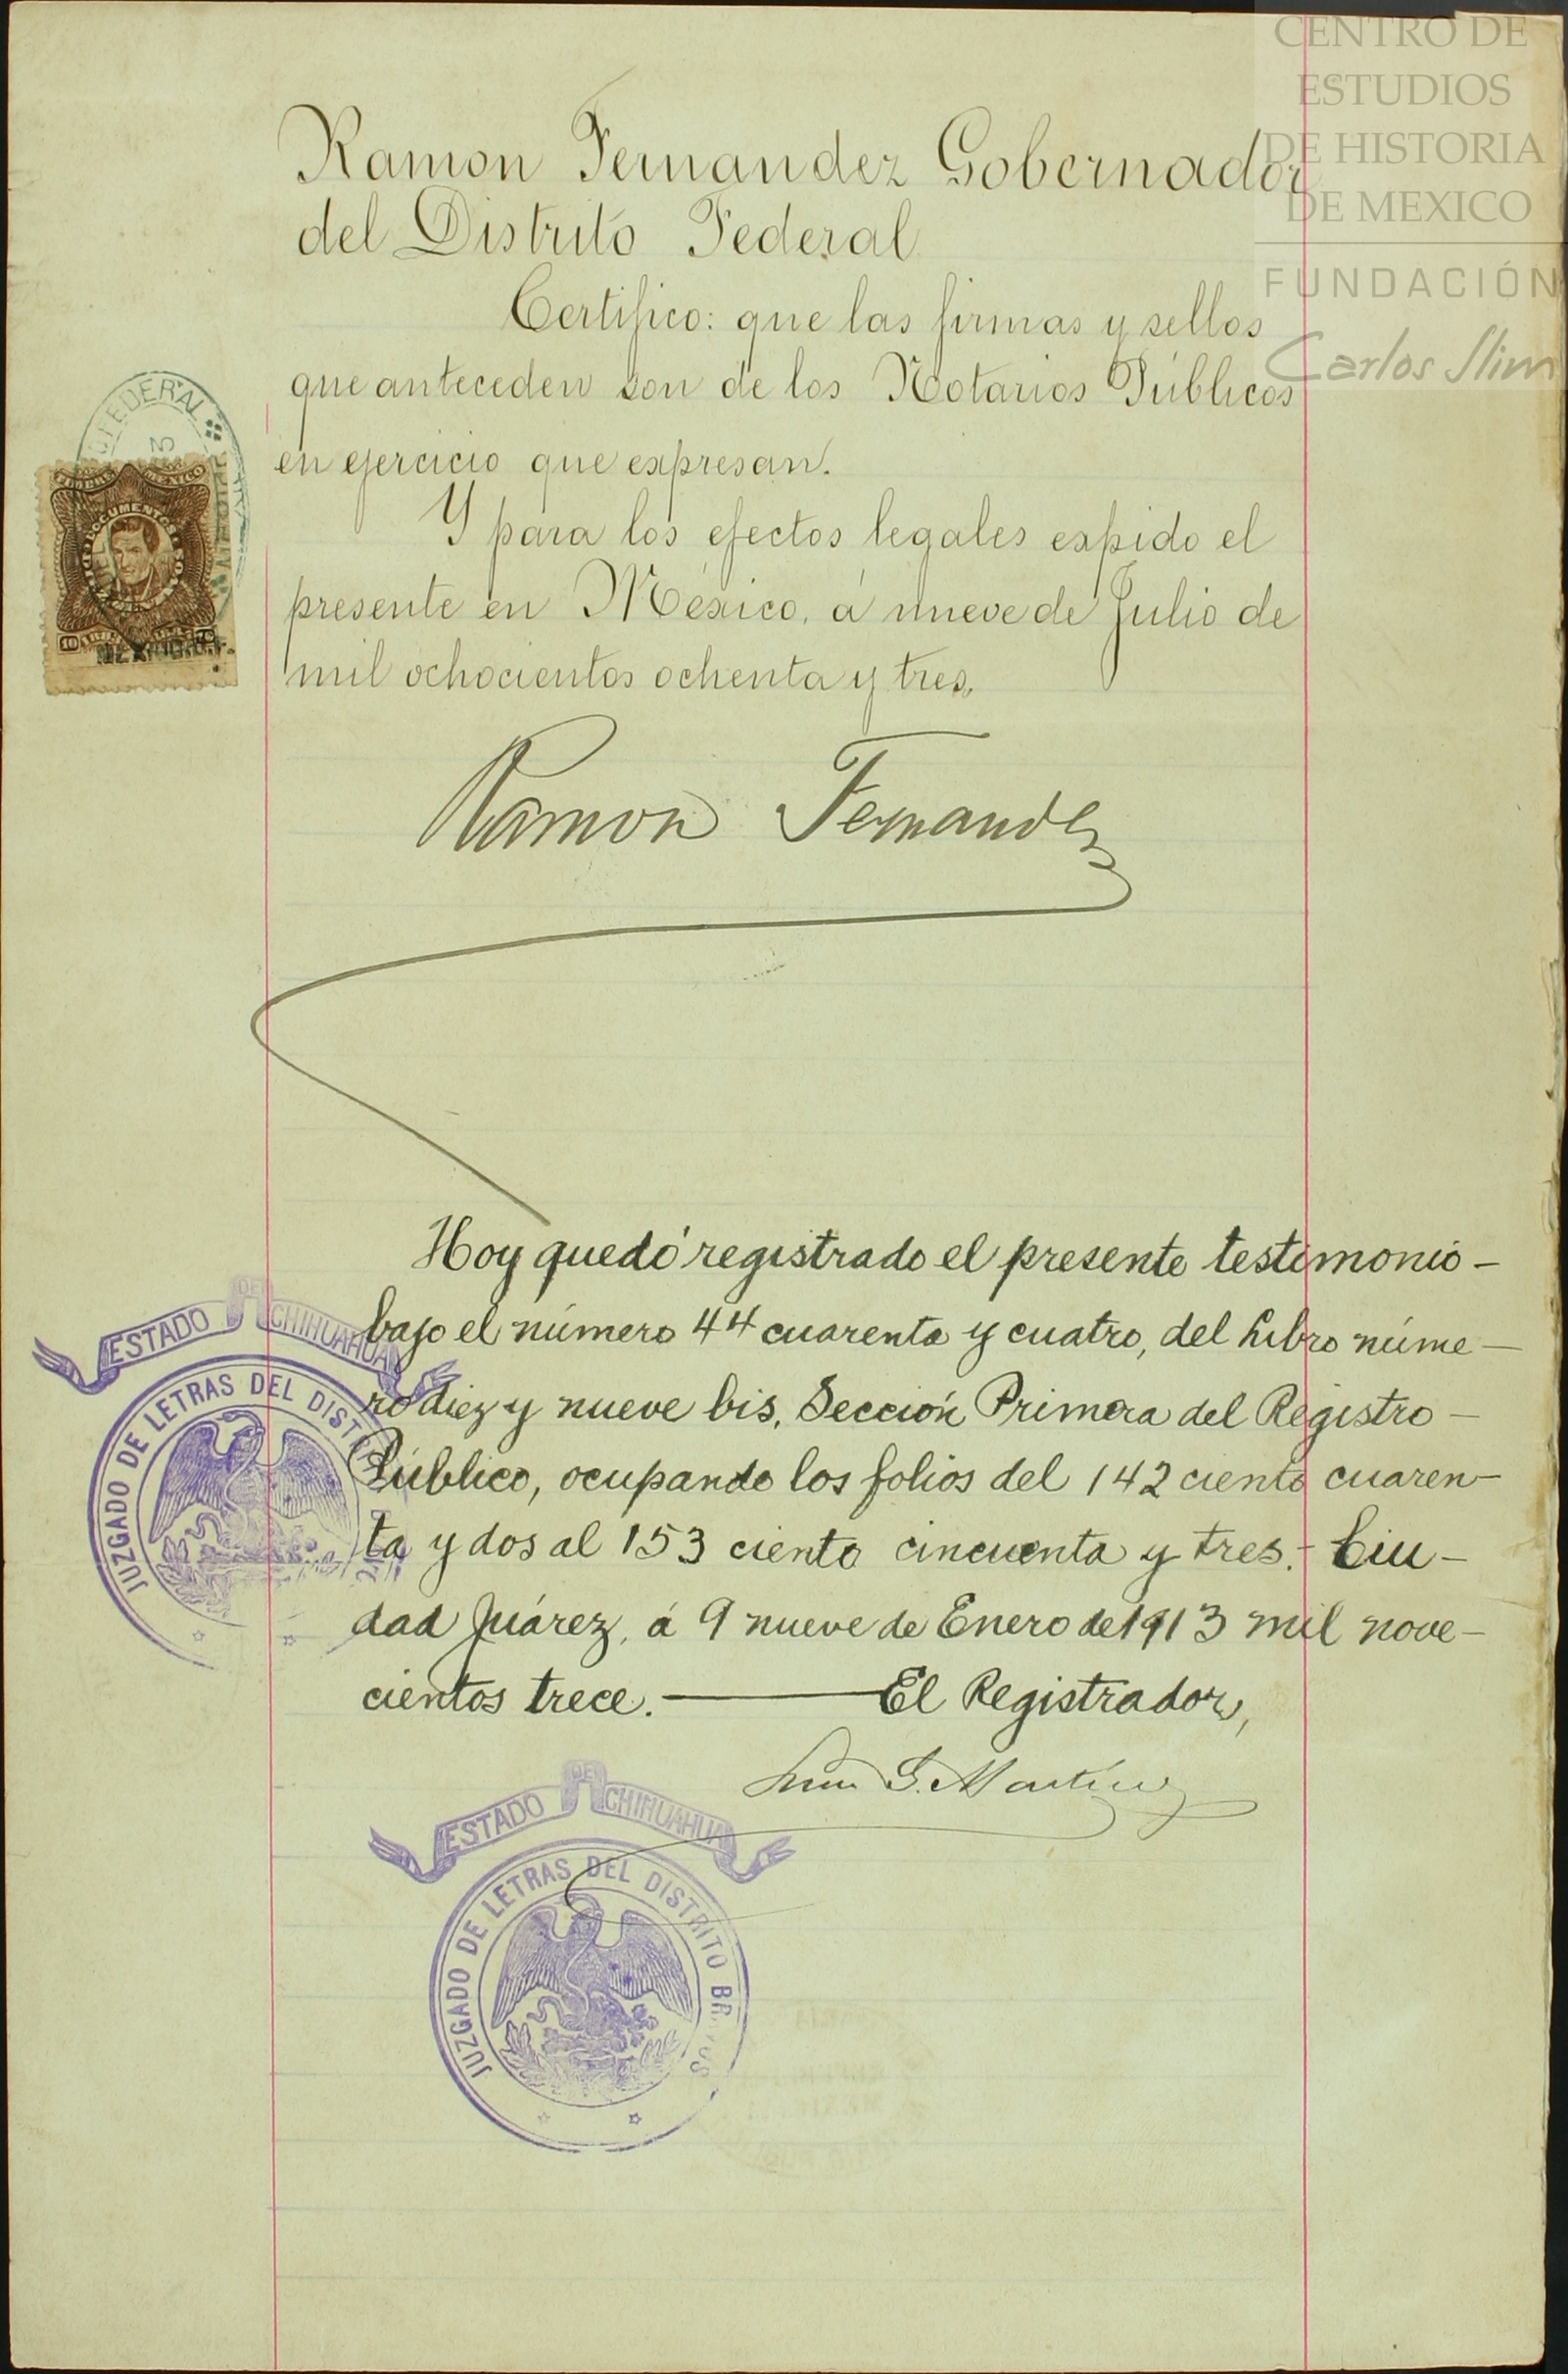 CENTRO DE
ESTUDIOS
DE HISTORIA
DE MEXICO
FUNDACIÓN
Carlos Slim
Ramon Fernandez Gobernador
del Distrito Federal
Certifico: que las firmas y sellos
que anteceden son de los Notarios Públicos
en ejercicio que expresan.
Y para los efectos legales expido el
presente en México, á nueve de Julio de
mil ochocientos ochenta y tres.
FEDERAL
DOCUMENTOS
MEXICO
10
Ramon Fernandez
Hoy quedó registrado el presente testimonio -
bajo el número 44 cuarenta y cuatro, del Libro núme-
ro diez y nueve bis, Sección Primera del Registro -
Público, ocupando los folios del 142 ciento cuaren-
ta y dos al 153 ciento cincuenta y tres.- Ciu-
dad Juárez, á 9 nueve de Enero de 1913 mil nove-
cientos trece. — El Registrador,
G. Martínez
ESTADO DE CHIHUAHUA
JUZGADO DE LETRAS DEL DIST
ESTADO DE CHIHUAHUA
JUZGADO DE LETRAS DEL DISTRITO BRAVOS